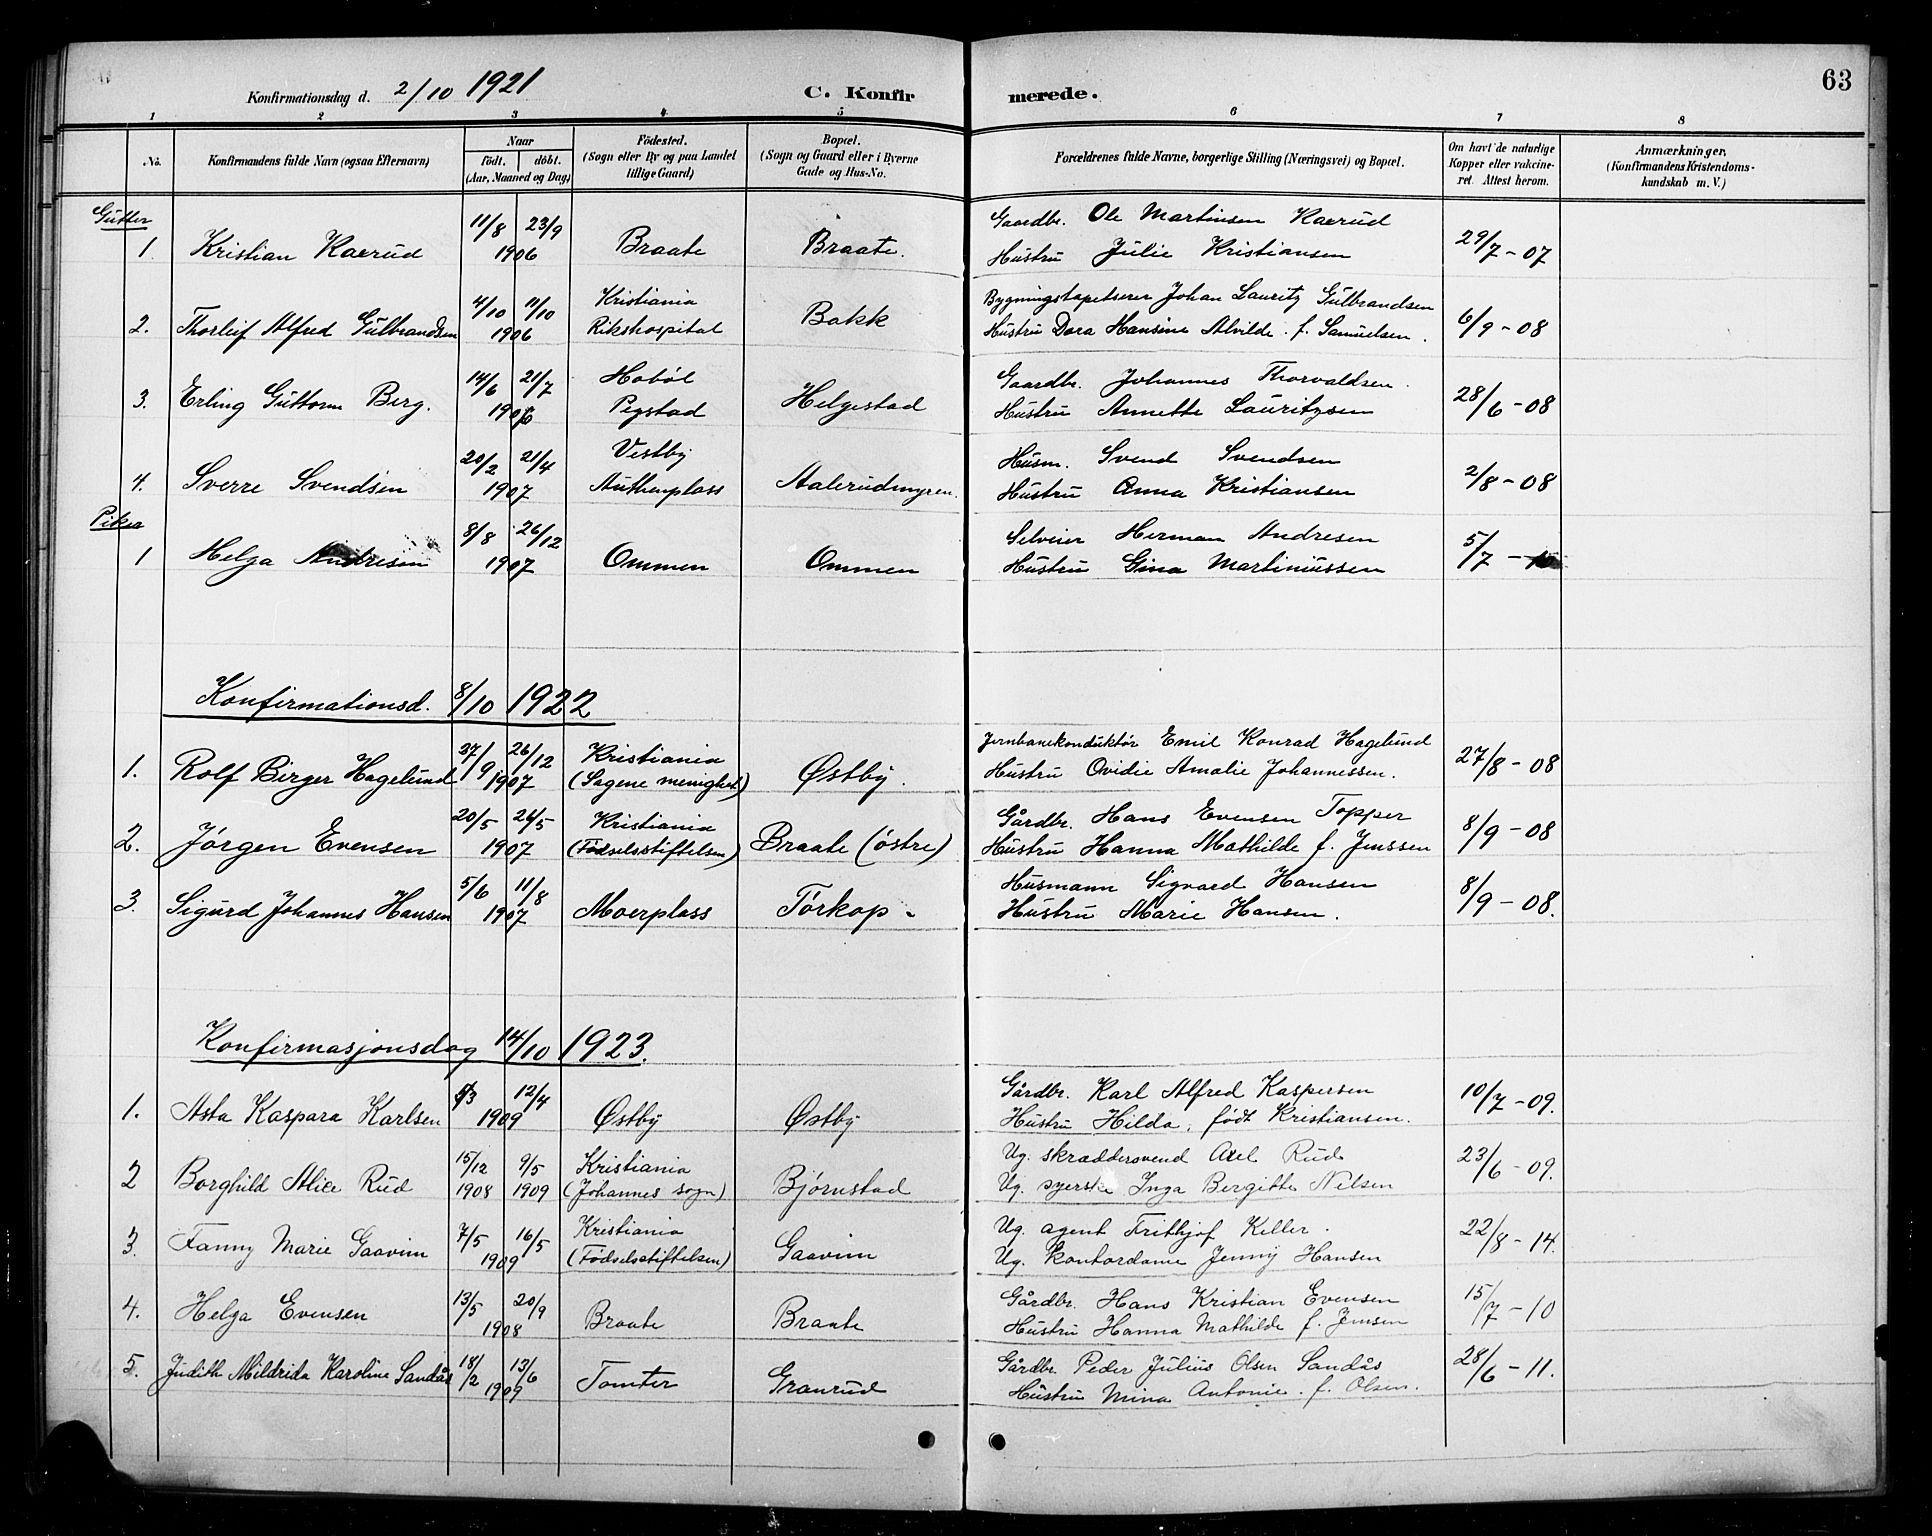 63
Konfirmationsdag d. 2/10 1921
C. Konfirmerede.
1 2 3 4 5 6 7 8
No.
Konfirmandens fulde Navn (ogsaa Efternavn)
Naar
födt. döbt.
(Aar, Maaned og Dag)
Födested.
(Sogn eller By og paa Landet
tillige Gaard)
Bopæl.
(Sogn og Gaard eller i Byerne
Gade og Hus-No.
Forældrenes fulde Navne, borgerlige Stilling (Næringsvei) og Bopæl.
Om havt de naturlige
Kopper eller vakcine-
ret. Attest herom.
Anmærkninger,
(Konfirmandens Kristendoms-
kundskab m. V.)
Gutter
11/8 23/9 Gaardbr. Ole Martinsen Kaerud
1. Kristian Kaerud 1906 Braate Braate. Hustru Julie Kristiansen 29/7-07
4/10 11/10 Kristiania Bygningstapetserer Johan Lauritz Gulbrandsen
2. Thorleif Alfred Gulbrandsen 1906 Rikshospital Bakk Hustru Dora Hansine Alvilde f. Samuelsen. 6/9-08
14/6 21/7 Hobøl Gaardbr. Johannes Thorvaldsen.
3. Erling Guttorm Berg. 1906 Pegstad Helgestad Hustru Annette Lauritzsen 28/6-08
20/2 21/4 Vestby Husm. Svend Svendsen
4. Sverre Svendsen 1907 Authenplass Aalerudmyren. Hustru Anna Kristiansen 2/8-08
Piker
8/8 26/12 Selveier Herman Andresen
1 Helga Andresen 1907 Ommen Ommen Hustru Gina Martiniussen 5/7-
Konfirmationsd. 8/10 1922
27/9 26/12 Kristiania Jernbanekonduktør Emil Konrad Hagelund
1. Rolf Birger Hagelund 1907 (Sagene menighet) Østby. Hustru Ovidie Amalie Johannessen. 27/8-08
20/5 26/5 Kristiania Gårdbr. Hans Evensen Topper
2. Jørgen Evensen 1907 (Fødselsstiftelsen) Braate (østre) Hustru Hanna Mathilde f. Jenssen 8/9-08
5/6 11/8 Husmann Sigvard Hansen
3. Sigurd Johannes Hansen 1907 Moerplass Torkop. Hustru Marie Hansen. 8/9-08.
Konfirmasjonsdag 14/10 1923.
/3 12/4 Gårdbr. Karl Alfred Kaspersen
1. Asta Kaspara Karlsen 1909 Østby Østby Hustru Hilda, født Kristiansen. 10/7-09.
15/12 9/5 Kristiania Ug. skræddersvend Axel Rud
2 Borghild Alice Rud 1908 1909 (Johannes sogn) Bjørnstad Ug. syerske Inga Bergitte Nilsen 23/6-09.
7/5 16/5 Kristiania Ug. agent Frithjof Keller.
3. Fanny Marie Gaavim 1909 (Fødselsstiftelsen) Gaavim Ug. kontordame Jenny Hansen 22/8-14.
13/5 20/9 Gårdbr. Hans Kristian Evensen
4. Helga Evensen 1908 Braate Braate Hustru Hanna Mathilde f. Jensen 15/7-10
18/2 13/6 Gårdbr. Peder Julius Olsen Sandås
5. Judith Mildrida Karoline Sandås 1909 Tomter Granrud Hustru Mina Antonie f. Olsen. 28/6-11.